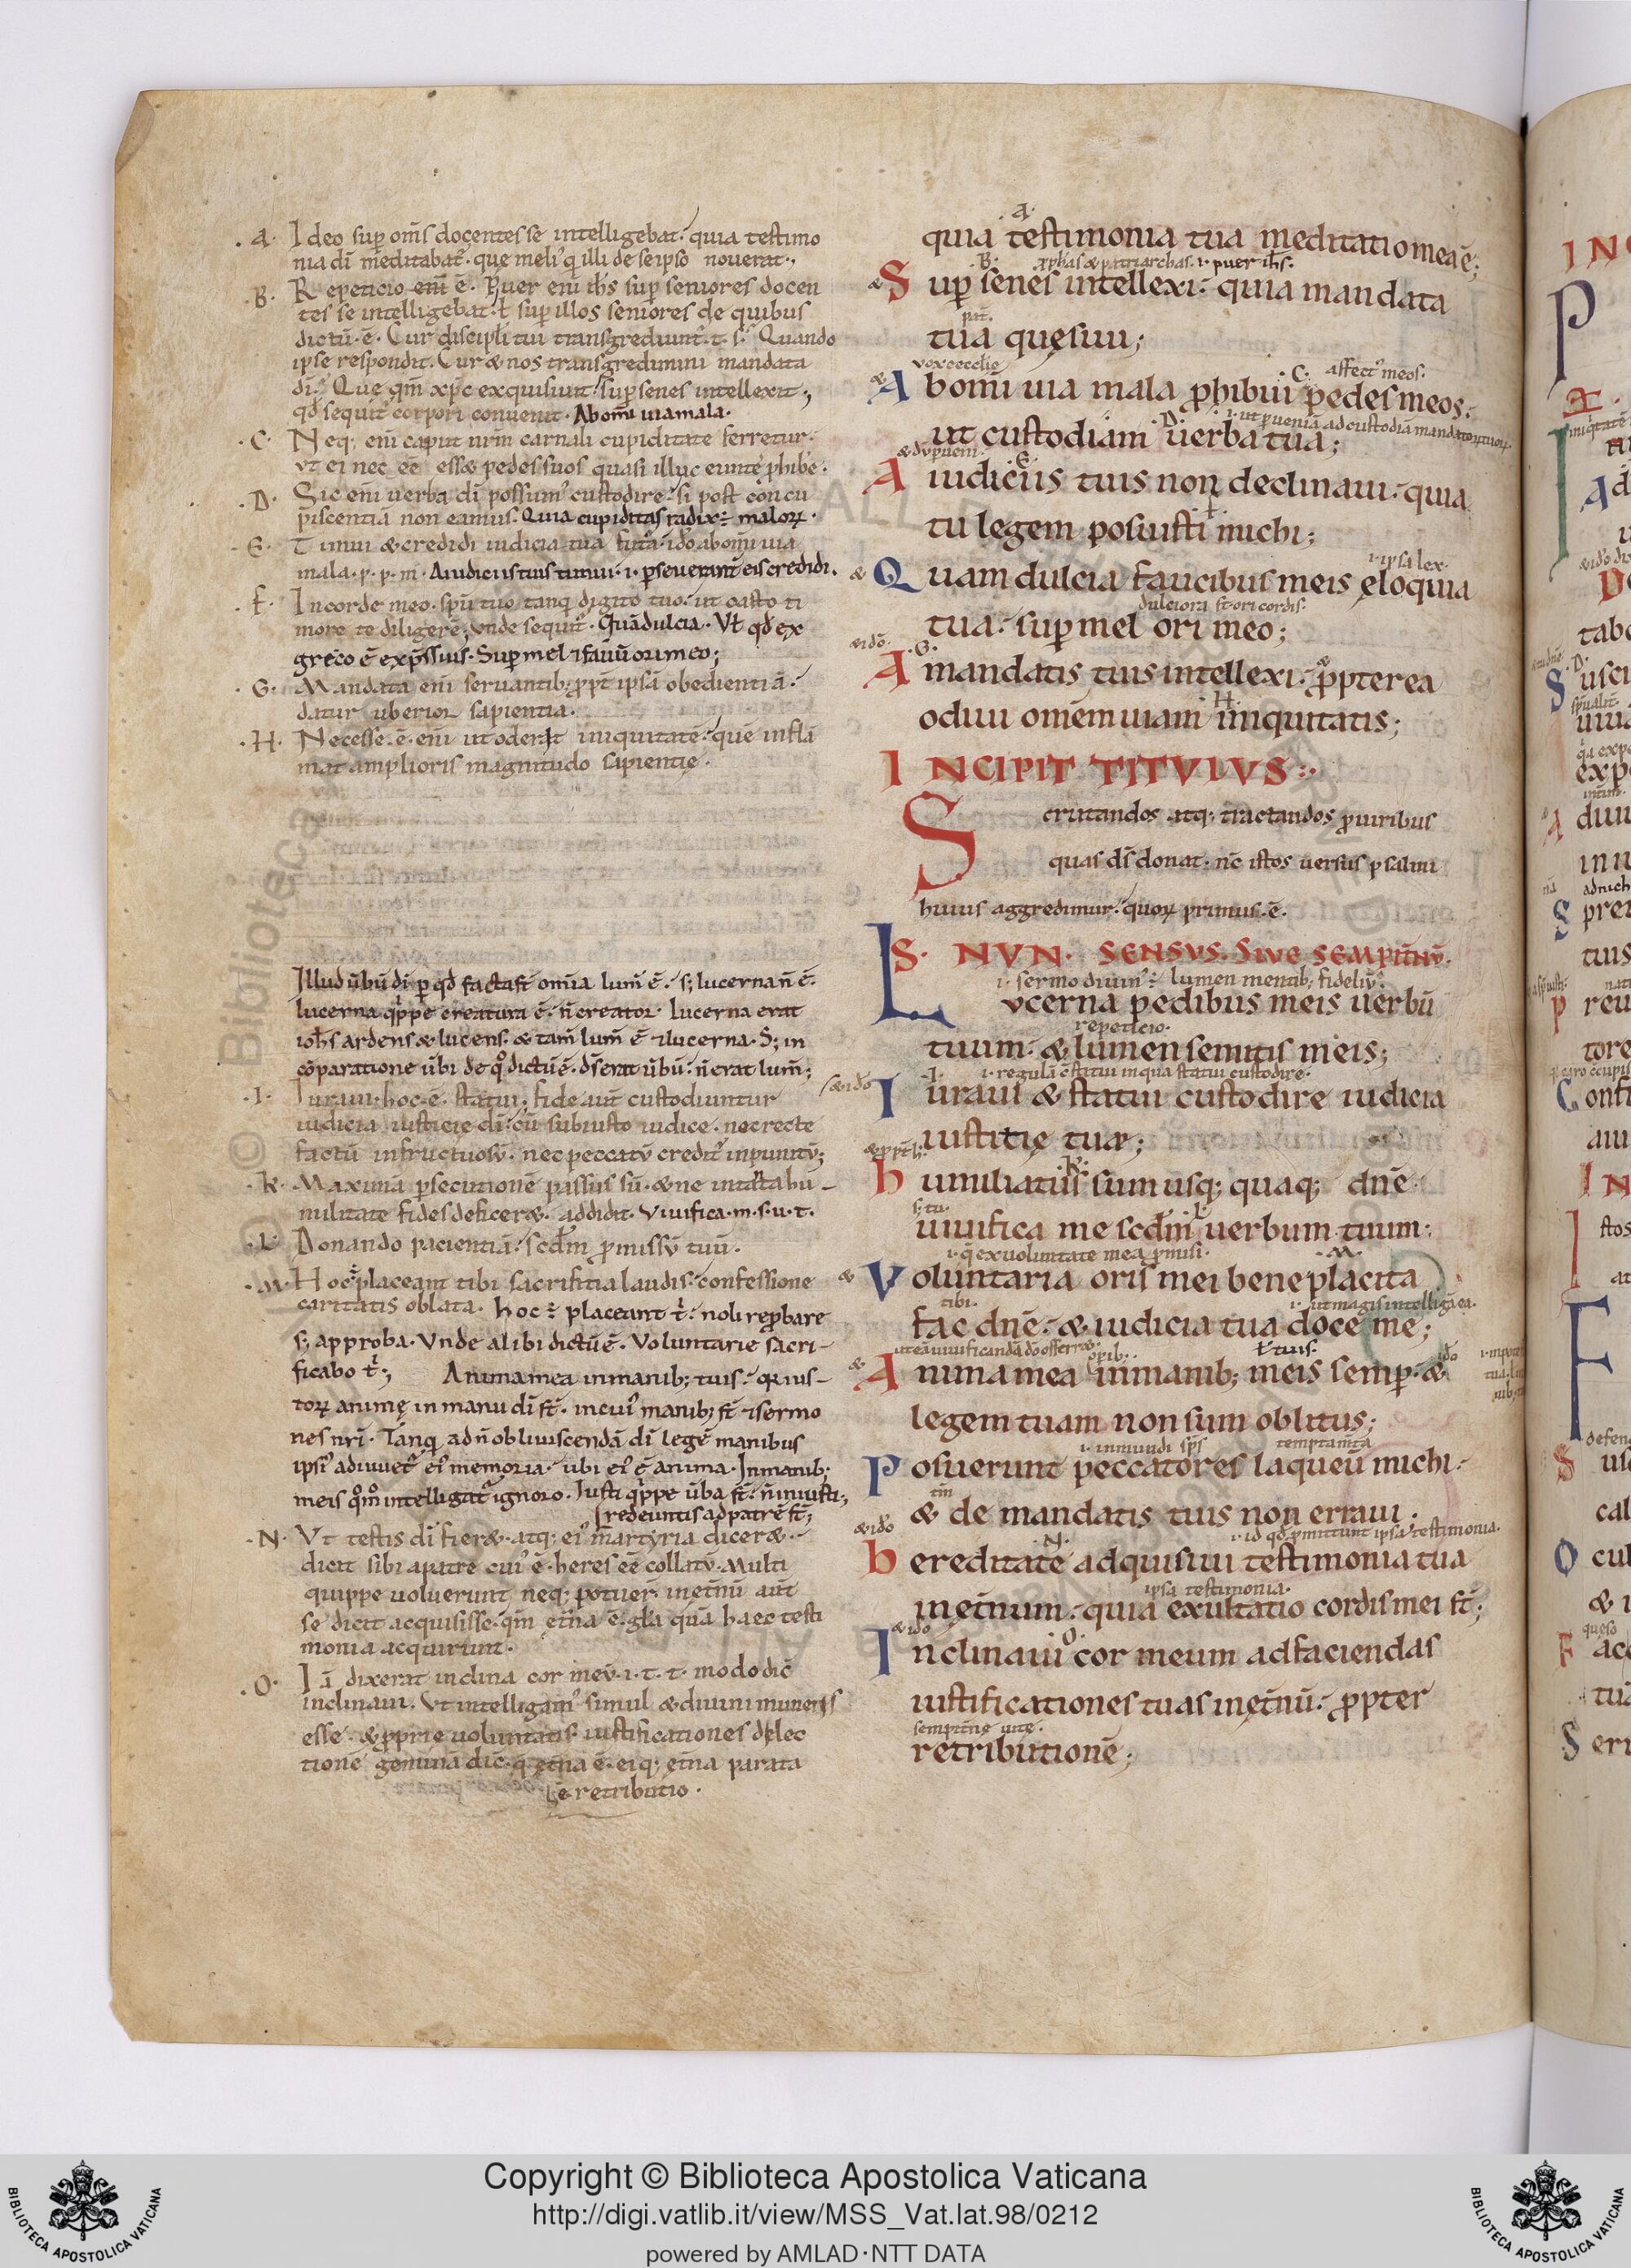 .a. Ideo sup om̄s docentes se intelligebat. quia testimo
nia dī meditabat̄. que meli᾽ q̄ illi de seipso nouerat.
.B. Repeticio eni ē. Puer eni ihs̄ sup seniores docen
tes se intelligebat. ł sup illos seniores de quibus
dictū ē. Cur discipli tui transgrediunt̄. t. s. Quando
ipse respondit. Cur & nos transgredimini mandata
dī. Que qm̄ xp̄c exquisiuit. sup senes intellexit;
qd sequit̄ corpori conuenit. Abomī uia mala.
.C. Neq; eni caput nr̄m carnali cupiditate ferretur.
ut ei nec eē ess& pedes suos quasi illuc eunte phibe.
.D. Sic eni uerba dī possum᾽ custodire. si post concu
piscentiā non eamus. Quia cupiditas radix ÷ maloꝝ.
.E. Timui & credidi iudicia tua futa. ido abomī uia
mala. p. p. m. A iudiciis tuis timui. i. pseueranť eis credidi.
.F. In corde meo. spū tuo tanq̄ digito tuo. ut casto ti
more te diligerē; unde sequit̄. Quā dulcia. Vł qd ex
greco ē exp̄ssius. Sup mel & fauū ori meo;
.G. Mandata eni seruantib; ppt ipsā obedientiā.
datur uberior sapientia.
.H. Necesse ē. eni ut oderat iniquitatē. quē inflā
mat amplioris magnitudo sapientię.
Illud ūbū dī p qd facta st̄ omīa lum̄ ē. s; lucerna n̄ ē.
lucerna q̄ppe creatura ē. n̄ creator. Lucerna erat
ioh̄s ardens & lucens. & tam̄ lum̄ ē & lucerna. S; in
cōparatione ūbi de q᾽ dictū ē. d̄s erat ūbū. n̄ erat lum̄;
.I. Iuraui. hoc ē. statui; fide aut̄ custodiuntur
iudicia iusticię dī. cū sub iusto iudice. nec recte
factū infructuosū. nec peccatū credit̄ inpunitū;
.K. Maximā psecutionē passus sū. & ne in tāta hu-
militate fides deficer&. addidit. Viuifica. m. s. u. t.
.L. Donando pacientiā. scdm̄ pmissū tuū.
.M. Hoc ē placeant tibi sacrifitia laudis. confessione
caritatis oblata. hoc ÷ placeant t̄. noli repbare
s; approba. Vnde alibi dictū ē. Voluntarie sacri-
ficabo t̄; Anima mea in manib; tuis. q̄ ius-
toꝝ animę in manu dī st̄. in cui᾽ manib; st̄ & sermo
nes nr̄i. Tanq̄ ad n̄ obliuiscendā dī legē manibus
ipsi᾽ adiuuet̄ ei᾽ memoria. ubi ei᾽ ē anima. In manib;
meis q᾽m᾽ intelligat̄ ignoro. Iusti q̄ppe ūba st̄. n̄ iniusti,
redeuntis ad patrē st̄;
.N. Vt testis dī fier&. atq; ei᾽ martyria dicer&.
dicit sibi a patre cui᾽ ē. heres eē collatū. Multi
quippe uoluerunt neq; potuer̄. inet̄nū aut̄
se dicit acquisisse. qm̄ et̄na ē. gła quā haec testi
monia acquirunt.
.O. Iā dixerat inclina cor meū. i. t. t. modo dic̄
inclinaui. Vt intelligam᾽ simul & diuini muneris
esse. & pprie uoluntatis. iustificationes delec
tione geminā dic. q̄ et̄na ē. eiq; et̄na parata
ē retributio.
.a.
quia testimonia tua meditatio mea ē;
.B. xphas & patriarchas. i. puer ihs̄.
& Sup senes intellexi. quia mandata
pat̄.
tua quęsiui;
vox ecclię .C. affect᾽ meos.
& Abomī uia mala phibui pedes meos.
.D. i. ut pueniā ad custodiā mandatoꝝ tuoꝝ
ut custodiam uerba tua;
.E.
A iudiciis tuis non declinaui. quia
.F.
tu legem posuisti michi;
i. ipsa lex.
& Quam dulcia faucibus meis eloquia
dulciora st̄ ori cordis.
tua. sup mel ori meo;
& idō. .G.
A mandatis tuis intellexi. ppterea
.H.
odiui omēm uiam iniquitatis;
INCIPIT TITVLVS
Scrutandos atq; tractandos p uiribus
quas dī donat. nc̄ istos uersus psalmi
huius aggredimur. quoꝝ primus ē.
IS. NVN. SENSVS. SIVE SEMPIT̄NV̄.
i. sermo diuin᾽ ÷ lumen mentib; fideliū.
Lvcerna pedibus meis uerbū
repeticio.
tuum. & lumen semitis meis;
& ido .I. i. regulā c̄stitui in qua statui custodire.
Iuraui & statui custodire iudicia
iustitię tuę;
.K.
humiliatus sum usq; quaq; dnē
s; tu. .L.
uiuifica me scdm̄ uerbum tuum.
i. q̄ ex uoluntate mea pmisi. .M.
& Voluntaria oris mei beneplacita
tibi. i. ut magis intelligā ea.
fac dnē. & iudicia tua doce me;
ł tuis. ido
& Anima mea in manib; meis semp. &
legem tuam non sum oblitus;
i. inmundi sp̄s temptam̄ta
Posuerunt peccatores laqueū michi.
tm̄
& de mandatis tuis non erraui.
& ido .N. i. id qd pmittunt ipsa testimonia.
hereditate adquisiui testimonia tua
ipsa testimonia.
inęt̄num. quia exultatio cordis mei st̄;
& ido .O.
Inclinaui cor meum ad faciendas
iustificationes tuas inęt̄nū. ppter
sempit̄ne uite.
retributionē;
Copyright © Biblioteca Apostolica Vaticana
http://digi.vatlib.it/view/MSS_Vat.lat.98/0212
powered by AMLAD·NTT DATA
BIBLIOTECA APOSTOLICA VATICANA
BIBLIOTECA APOSTOLICA VATICANA